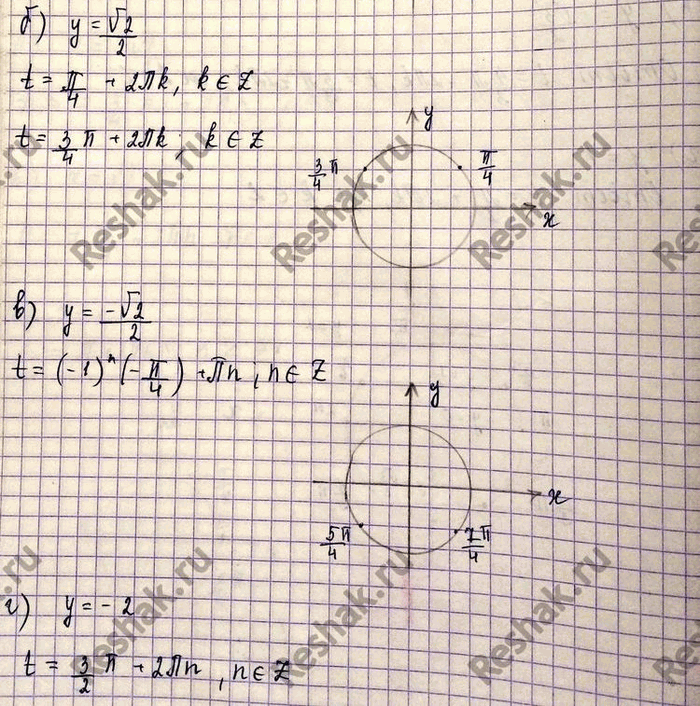 б) y = √2/2
t = π/4 + 2πk, k ∈ Z
t = 3/4 π + 2πk, k ∈ Z
y
3/4 π
π/4
x
в) y = -√2/2
t = (-1)ⁿ (-π/4) + πn; n ∈ Z
y
x
5π/4
7π/4
г) y = -2
t = 3/2 π + 2πn, n ∈ Z
Reshak.ru
Reshak.ru
Reshak.ru
Reshak.ru
Reshak.ru
Reshak.ru